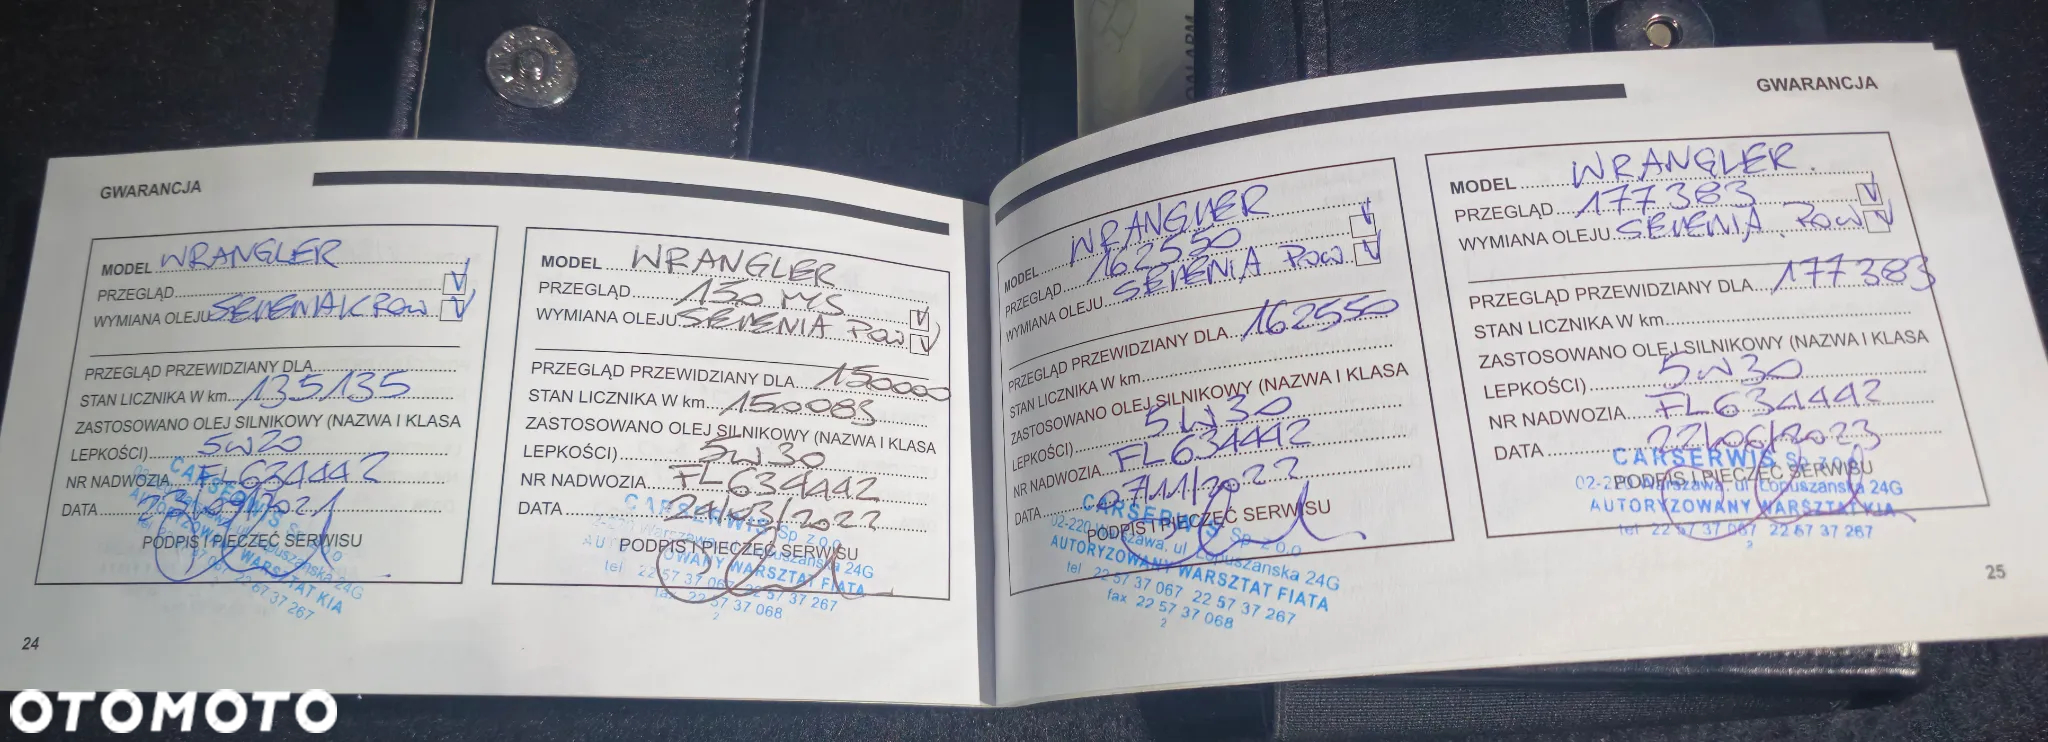 GWARANCJA
MODEL WRANGLER
PRZEGLĄD V
WYMIANA OLEJU V
PRZEGLĄD PRZEWIDZIANY DLA
STAN LICZNIKA W km 135135
ZASTOSOWANO OLEJ SILNIKOWY (NAZWA I KLASA
LEPKOŚCI) 5W20
NR NADWOZIA FL634442
DATA 23/09/2021
PODPIS I PIECZĘĆ SERWISU
CARSERWIS Sp z o.o
AUTORYZOWANY WARSZTAT KIA
24
MODEL WRANGLER
PRZEGLĄD 150 MS V
WYMIANA OLEJU SERENIA POW V
PRZEGLĄD PRZEWIDZIANY DLA 150000
STAN LICZNIKA W km 150083
ZASTOSOWANO OLEJ SILNIKOWY (NAZWA I KLASA
LEPKOŚCI) 5W30
NR NADWOZIA FL634442
DATA 24/03/2022
PODPIS I PIECZĘĆ SERWISU
CARSERWIS Sp z o.o
AUTORYZOWANY WARSZTAT FIATA
tel 22 57 37 067 22 57 37 267
fax 22 57 37 068
2
MODEL WRANGLER
PRZEGLĄD 162550 V
WYMIANA OLEJU SERENIA POW V
PRZEGLĄD PRZEWIDZIANY DLA 162550
STAN LICZNIKA W km
ZASTOSOWANO OLEJ SILNIKOWY (NAZWA I KLASA
LEPKOŚCI) 5W30
NR NADWOZIA FL634442
DATA 07/11/2022
PODPIS I PIECZĘĆ SERWISU
CARSERWIS Sp z o.o
02-220 Warszawa, ul Łopuszańska 24G
AUTORYZOWANY WARSZTAT FIATA
tel 22 57 37 067 22 57 37 267
fax 22 57 37 068
2
GWARANCJA
MODEL WRANGLER
PRZEGLĄD 177383 V
WYMIANA OLEJU SERENIA POW V
PRZEGLĄD PRZEWIDZIANY DLA 177383
STAN LICZNIKA W km
ZASTOSOWANO OLEJ SILNIKOWY (NAZWA I KLASA
LEPKOŚCI) 5W30
NR NADWOZIA FL634442
DATA 22/06/2023
PODPIS I PIECZĘĆ SERWISU
CARSERWIS Sp z o.o
02-220 Warszawa, ul Łopuszańska 24G
AUTORYZOWANY WARSZTAT KIA
tel 22 57 37 067 22 57 37 267
2
25
OTOMOTO